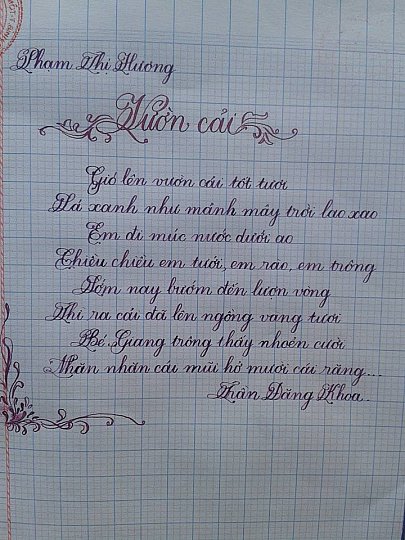 Phạm Thị Hương
Vườn cải
Gió lên vườn cải tốt tươi
Lá xanh như mảnh mây trời lao xao
Em đi múc nước dưới ao
Chiều chiều em tưới, em rào, em trông
Sớm nay bướm đến lượn vòng
Thì ra cải đã lên ngồng vàng tươi
Bé Giang trông thấy nhoẻn cười
Nhăn nhăn cái mũi hở mười cái răng...
Trần Đăng Khoa.